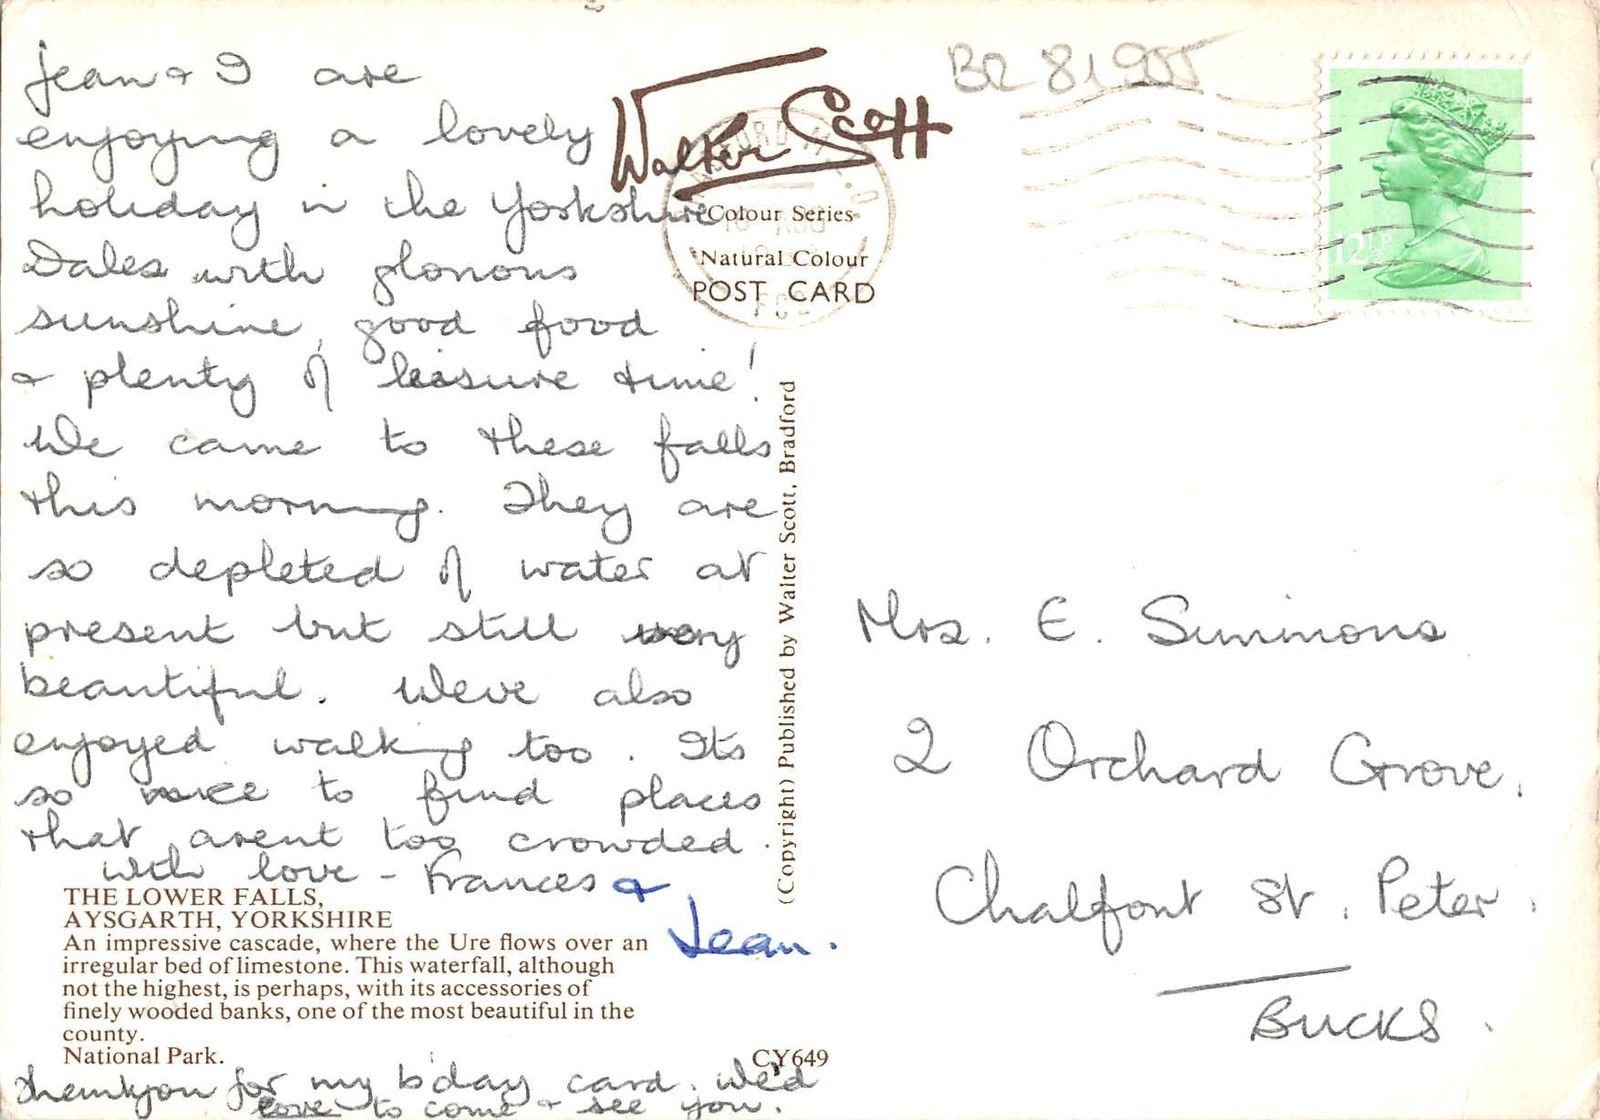 Jean & I are
enjoying a lovely
holiday in the Yorkshire
Dales with glorious
sunshine, good food
& plenty of leisure time!
We came to these falls
this morning. They are
so depleted of water at
present but still very
beautiful. Weve also
enjoyed walking too. Its
so nice to find places
that arent too crowded.
With love - Frances &
Jean.
THE LOWER FALLS,
AYSGARTH, YORKSHIRE
An impressive cascade, where the Ure flows over an
irregular bed of limestone. This waterfall, although
not the highest, is perhaps, with its accessories of
finely wooded banks, one of the most beautiful in the
county.
National Park.
CY649
Thankyou for my b'day card. We'd
love to come & see you.
Walter Scott
Colour Series
Natural Colour
POST CARD
(Copyright) Published by Walter Scott, Bradford
BR 81955
12½P
Mrs. E. Simmons
2 Orchard Grove,
Chalfont St. Peter.
BUCKS.